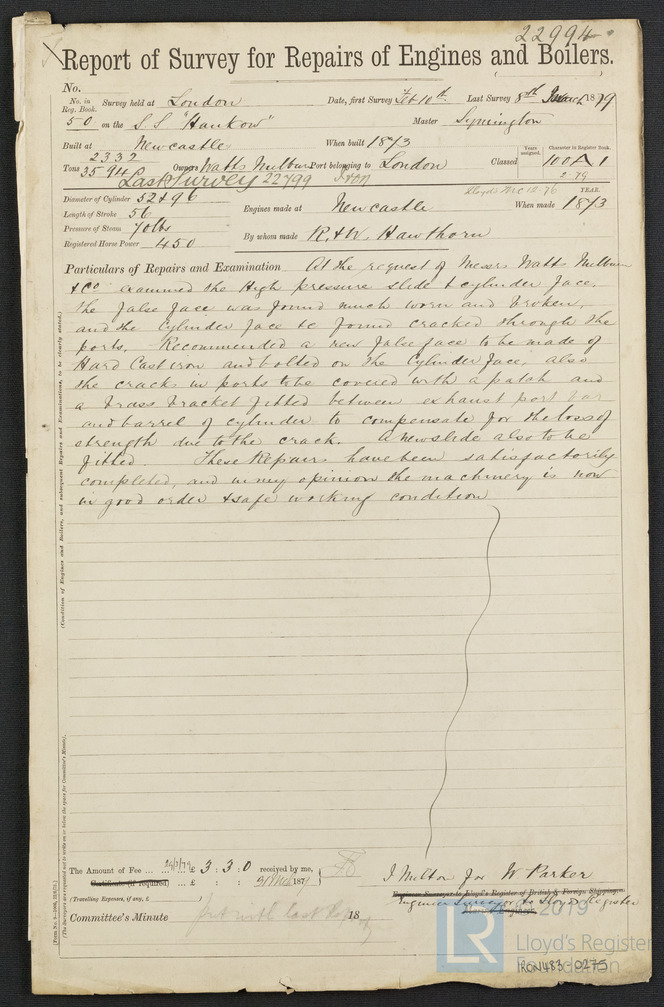 22994
Report of Survey for Repairs of Engines and Boilers.
No.
No. in Reg. Book. Survey held at London Date, first Survey Feb 10th Last Survey 8th March 1879
50 on the S.S "Hankow" Master Symington
Built at Newcastle When built 1873 Years assigned. Character in Register Book.
Tons 2332 3594 Owners Watts Milburn Port belonging to London Classed 100 A 1
Last Survey 22799 Iron 2.79
Lloyds MC 12.76 YEAR.
Diameter of Cylinder 52 & 96
Length of Stroke 56 Engines made at Newcastle When made 1873
Pressure of Steam 70lbs
Registered Horse Power 450 By whom made R. & W. Hawthorn
Particulars of Repairs and Examination At the request of Messrs Watts Milburn
& Co examined the High pressure slide & cylinder face.
The false face was found much worn and broken,
and the cylinder face to found cracked through the
ports. Recommended a new false face to be made of
Hard Cast iron and bolted on the cylinder face, also
the cracks in ports to be covered with a patch and
a brass bracket fitted between exhaust port bar
and barrel of cylinder to compensate for the loss of
strength due to the crack. A new slide also to be
fitted. These Repairs have been satisfactorily
completed, and in my opinion the machinery is now
in good order & safe working condition
(Condition of Engines and Boilers, and subsequent Repairs and Examinations, to be clearly stated.)
(The Surveyors are requested not to write on or below the space for Committee's Minute).
The Amount of Fee ... £ 3 : 3 : 0 received by me,
Certificate (if required) ... £ : : 187
(Travelling Expenses, if any, £
J Milton for W Parker
Engineer Surveyor to Lloyd's Register of British & Foreign Shipping.
Engineer Surveyor to Lloyds Register
Committee's Minute 18
2019
LR
Lloyd's Register
Foundation
IRON483-0275